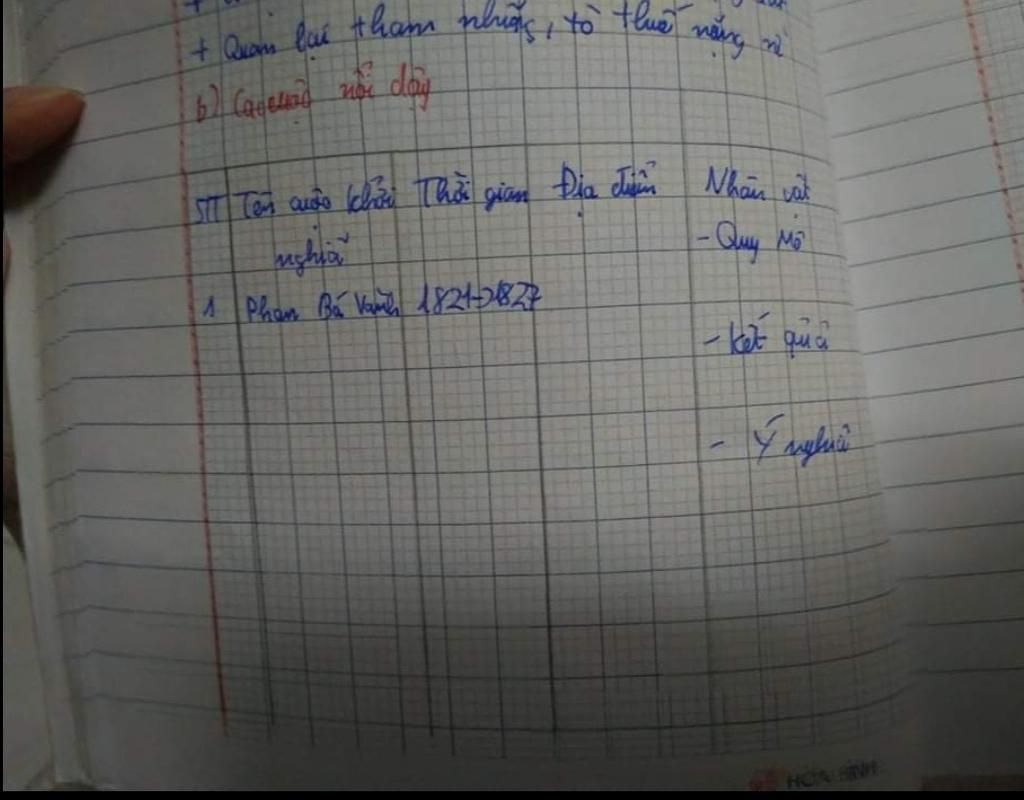 + Quan lại tham nhũng, tô thuế nặng nề
b) Các cuộc nổi dậy
STT Tên cuộc khởi nghĩa Thời gian Địa điểm Nhân vật
- Quy Mô
1 Phan Bá Vành 1821->1827
- kết quả
- Ý nghĩa
HÒA BÌNH